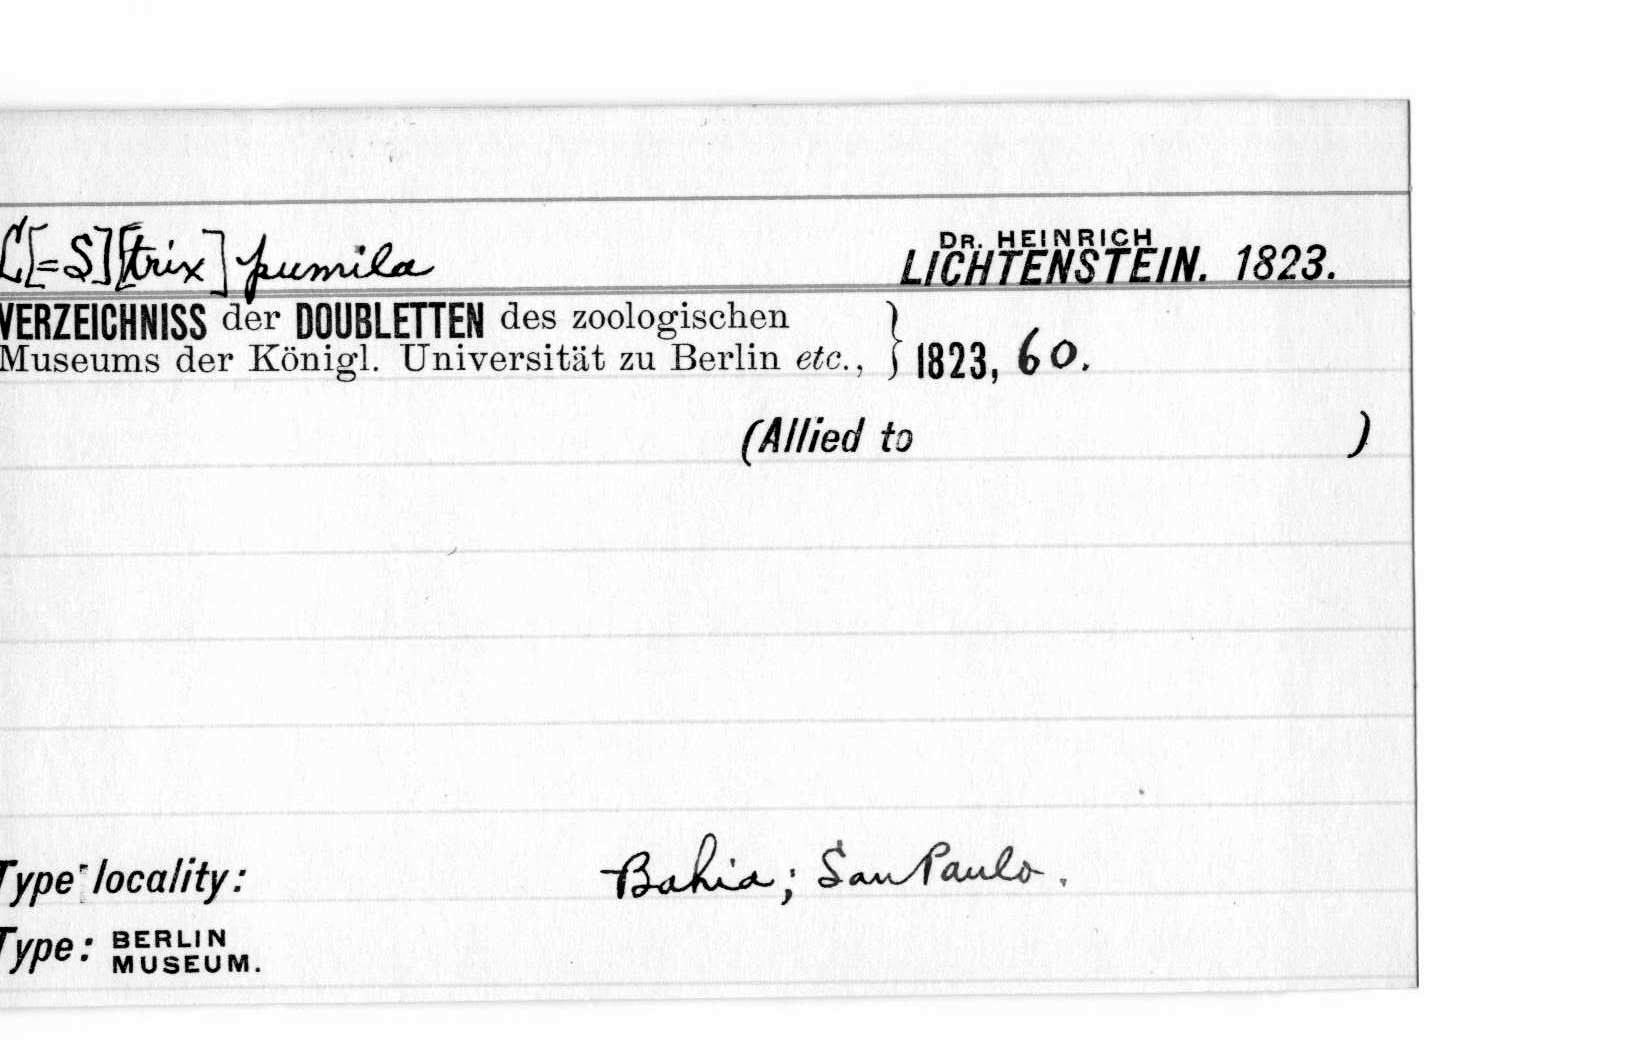 L[=S][trix] pumila
DR. HEINRICH
LICHTENSTEIN. 1823.
VERZEICHNISS der DOUBLETTEN des zoologischen
Museums der Königl. Universität zu Berlin etc., } 1823, 60.
(Allied to )
Type locality: Bahia; San Paulo.
Type: BERLIN
MUSEUM.